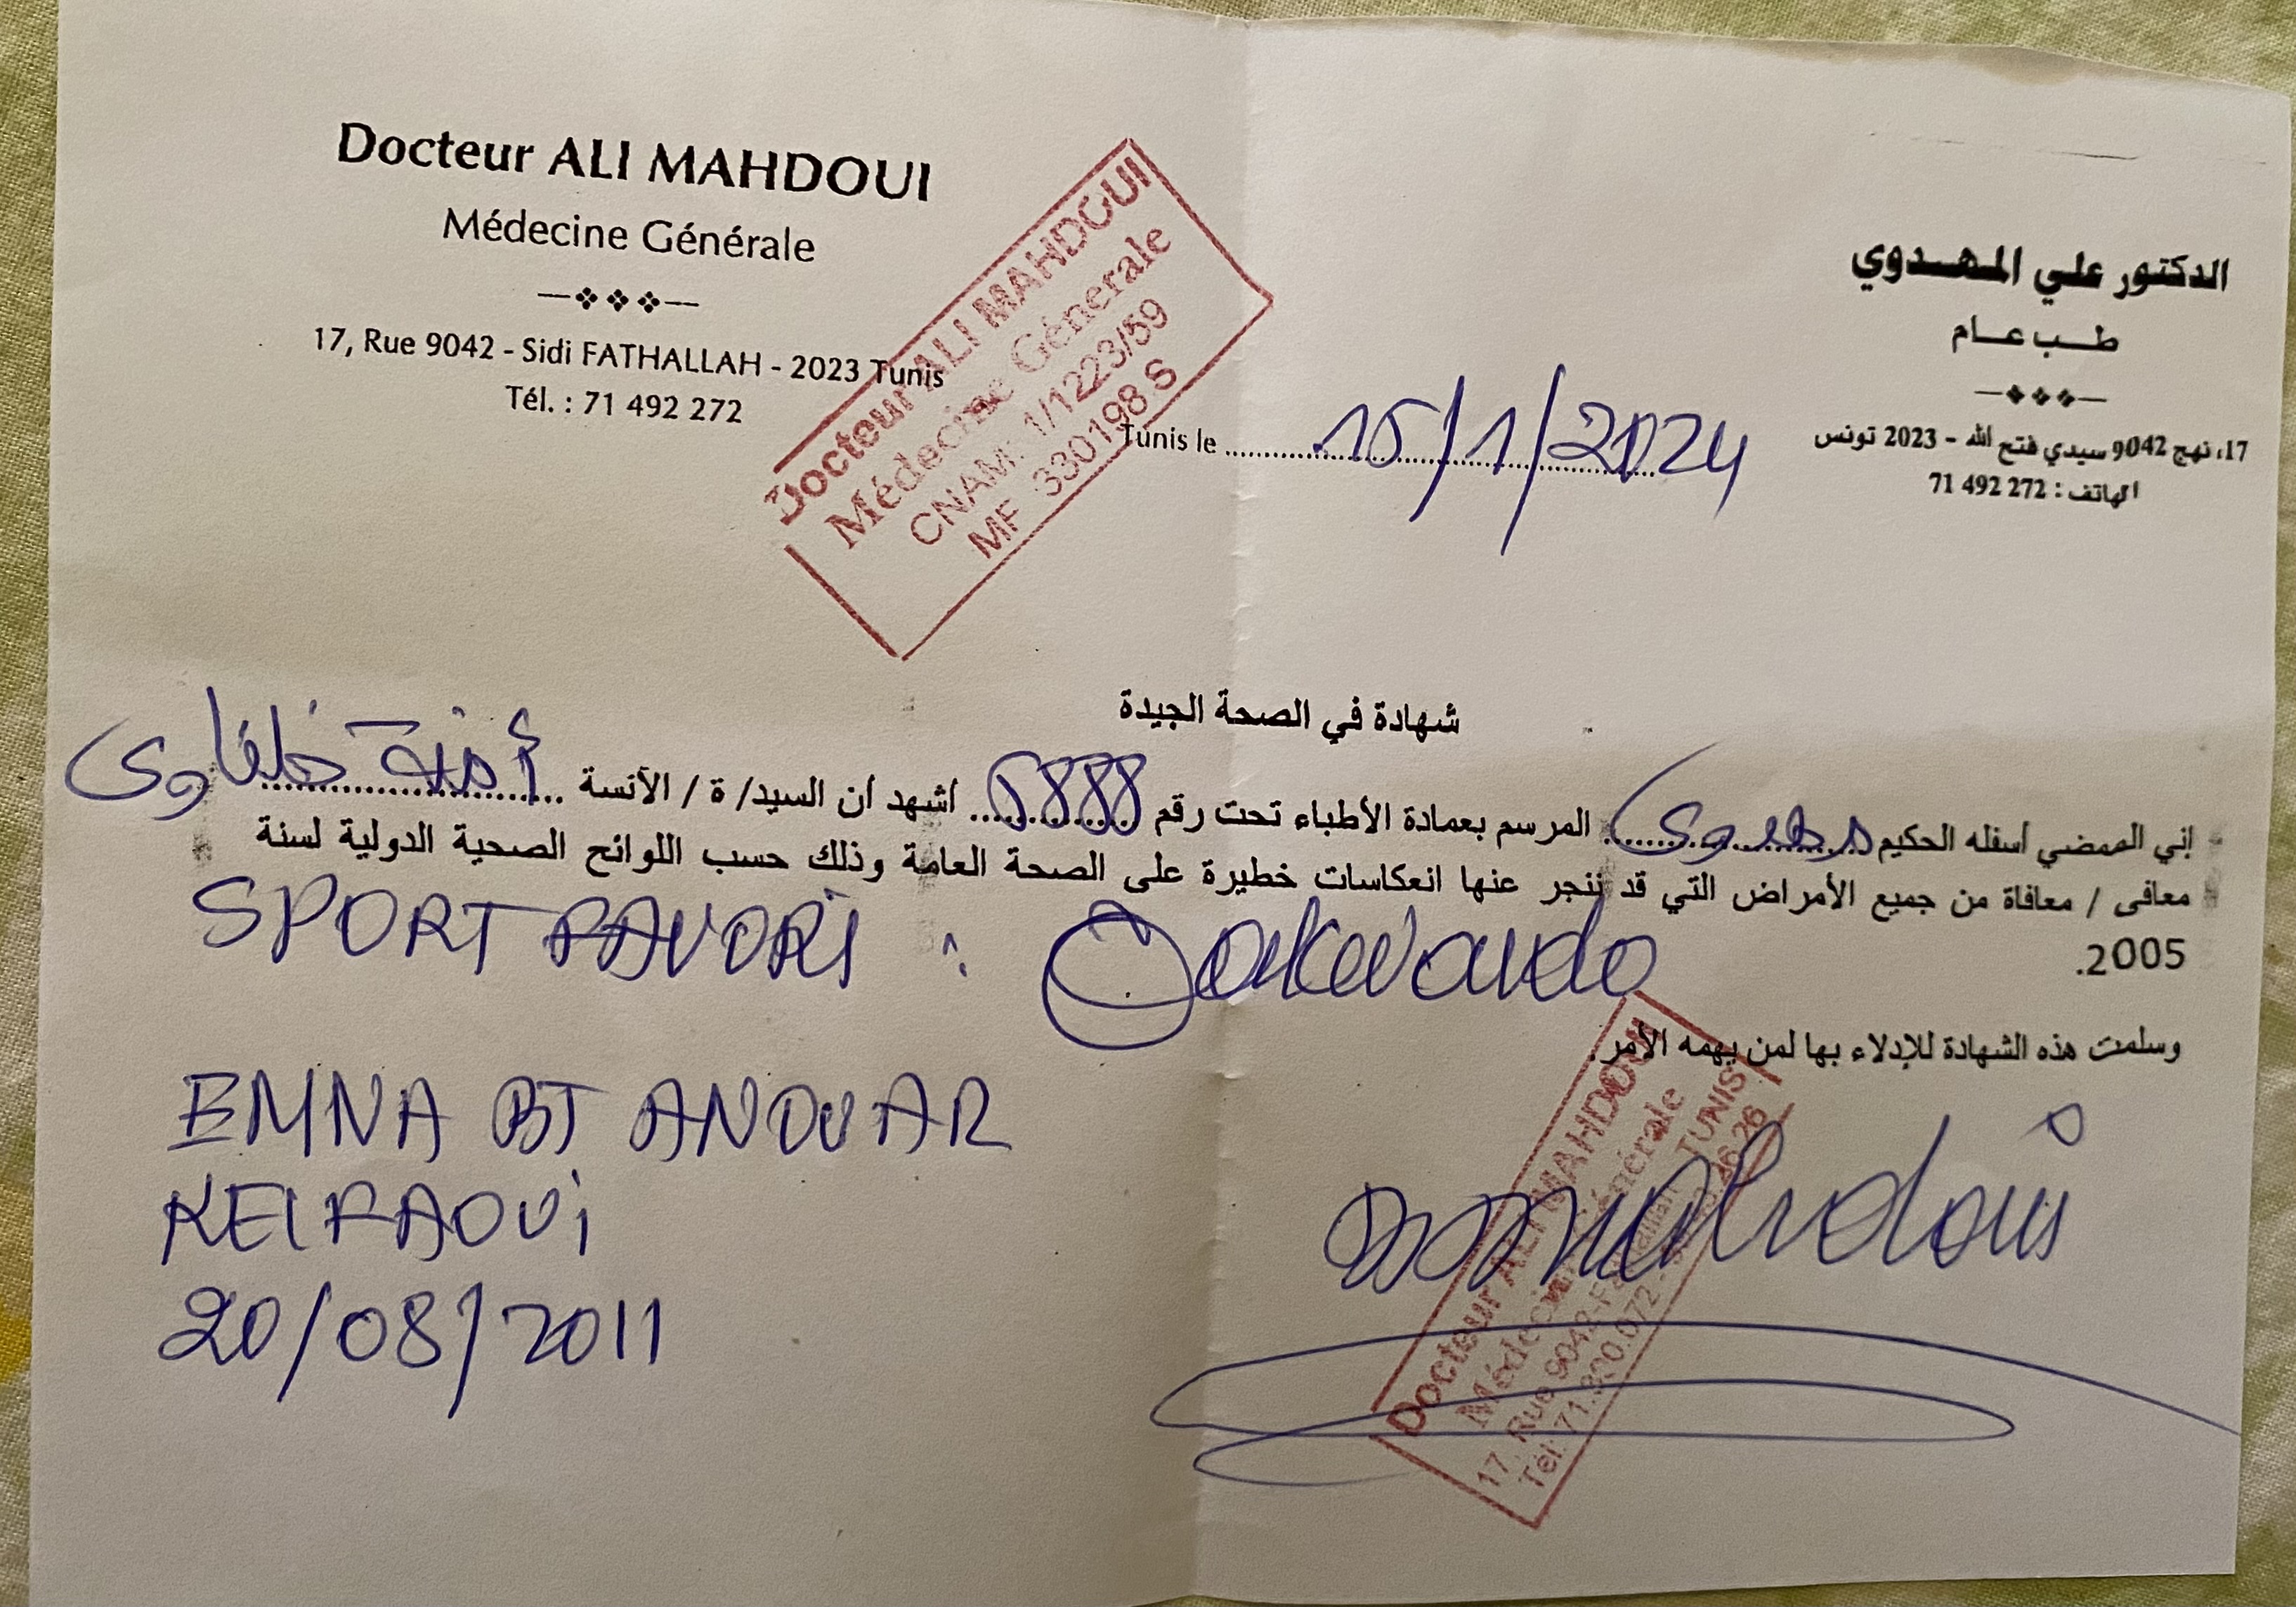 Docteur ALI MAHDOUI
Médecine Générale
17, Rue 9042 - Sidi FATHALLAH - 2023 Tunis
Tél. : 71 492 272
الدكتور علي المهدوي
طب عام
17، نهج 9042 سيدي فتح الله - 2023 تونس
الهاتف : 71 492 272
Docteur ALI MAHDOUI
Médecine Génerale
CNAM: 1/1223/59
MF 330198 S
Tunis le 15/1/2024
شهادة في الصحة الجيدة
إني الممضي أسفله الحكيم مهدوي المرسم بعمادة الأطباء تحت رقم 5888 أشهد أن السيد/ ة / الآنسة أمنة خلفاوي
معافى / معافاة من جميع الأمراض التي قد تنجر عنها انعكاسات خطيرة على الصحة العامة وذلك حسب اللوائح الصحية الدولية لسنة
2005.
SPORT FAVORI :
وسلمت هذه الشهادة للإدلاء بها لمن يهمه الأمر.
EMNA BT ANOUAR
KELFAOUI
20/08/2011
Docteur ALI MAHDOUI
Médecine Générale
17, Rue 9042-Fathallah TUNIS